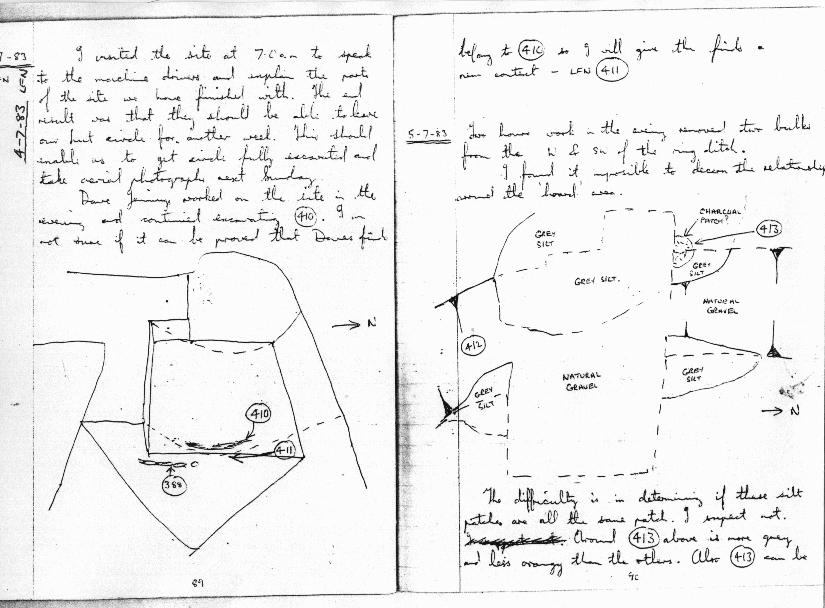 7-83
4-7-83 LFN
I visited the site at 7.0 a.m to speak
to the machine drivers and explain the parts
of the site we have finished with. The end
result was that they should be able to leave
our hut circle for another week. This should
enable us to get circle fully excavated and
take aerial photographs next Sunday.
Dave worked on the site in the
evening and continued excavating 410. I am
not sure if it can be proved that Daves find
N
410
411
388
89
belong to 410 so I will give the finds a
new context - LFN 411
5-7-83
Two hours work in the evening removed two bulks
from the W & SW of the ring ditch.
I found it impossible to discern the relationship
around the 'hoard' area.
CHARCOAL
PATCH
413
GREY
SILT
GREY SILT.
GREY
SILT
NATURAL
GRAVEL
412
GREY
SILT
NATURAL
GRAVEL
GREY
SILT
N
The difficulty is in determining if these silt
patches are all the same patch. I suspect not.
Around 413 above is more grey
and less orangy than the others. Also 413 can be
90